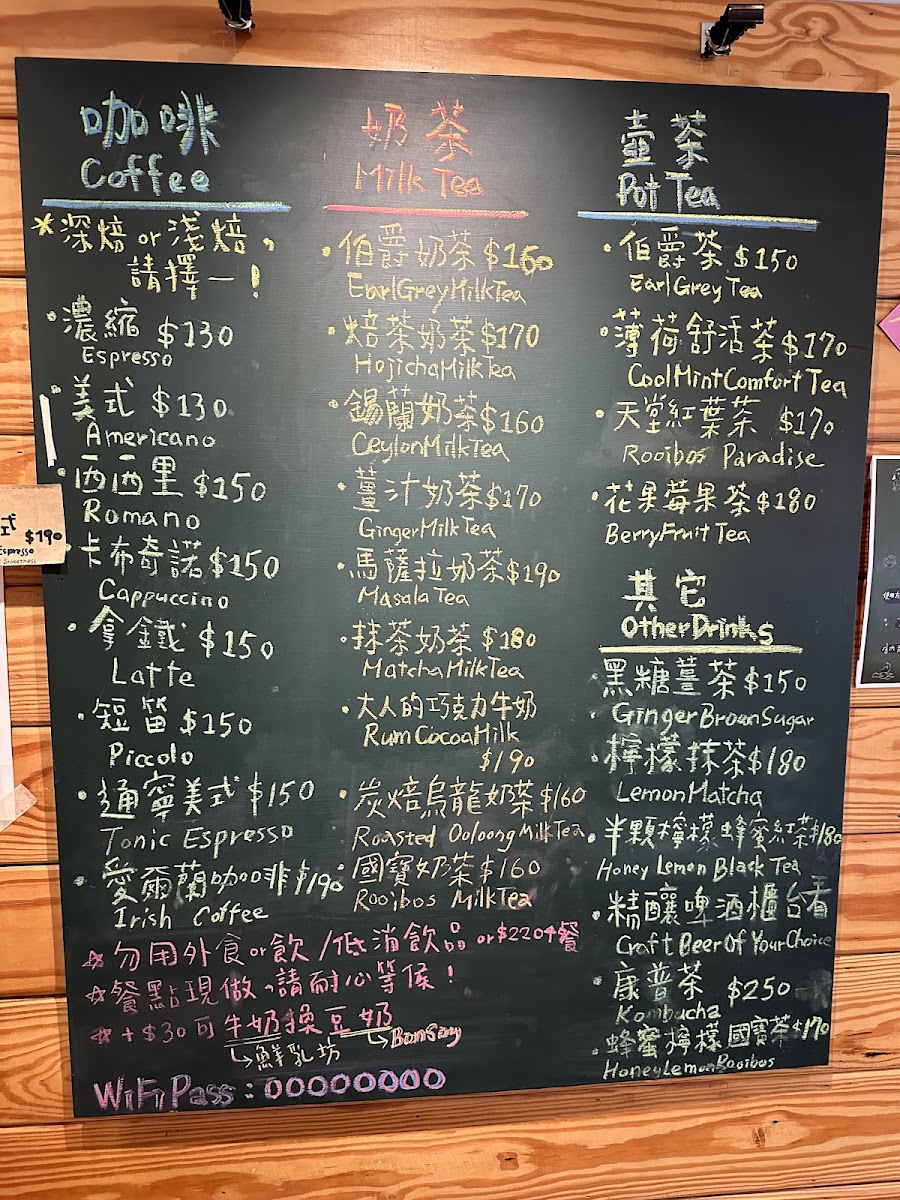 咖啡
Coffee
*深焙or淺焙,
請擇一!
·濃縮 $130
Espresso
·美式 $130
Americano
·西西里 $150
Romano
·卡布奇諾 $150
Cappuccino
·拿鐵 $150
Latte
·短笛 $150
Piccolo
·通寧美式 $150
Tonic Espresso
·愛爾蘭咖啡 $190
Irish Coffee
奶茶
Milk Tea
·伯爵奶茶 $160
Earl Grey Milk Tea
·焙茶奶茶 $170
Hojicha Milk Tea
·錫蘭奶茶 $160
Ceylon Milk Tea
·薑汁奶茶 $170
Ginger Milk Tea
·馬薩拉奶茶 $190
Masala Tea
·抹茶奶茶 $180
Matcha Milk Tea
·大人的巧克力牛奶
Rum Cocoa Milk
$190
·炭焙烏龍奶茶 $160
Roasted Ooloong Milk Tea
·國寶奶茶 $160
Rooibos Milk Tea
壺茶
Pot Tea
·伯爵茶 $150
Earl Grey Tea
·薄荷舒活茶 $170
Cool Mint Comfort Tea
·天堂紅葉茶 $170
Rooibos Paradise
·花果莓果茶 $180
Berry Fruit Tea
其它
Other Drinks
·黑糖薑茶 $150
Ginger Brown Sugar
·檸檬抹茶 $180
Lemon Matcha
·半顆檸檬蜂蜜紅茶 $180
Honey Lemon Black Tea
·精釀啤酒櫃台看
Craft Beer Of Your Choice
·康普茶 $250
Kombucha
·蜂蜜檸檬國寶茶 $170
Honey Lemon Rooibos
☆勿用外食or飲/低消飲品or$220↑餐
☆餐點現做,請耐心等候!
☆+$30可牛奶換豆奶
↳鮮乳坊
↳BonSoy
WiFi Pass:00000000
式
$190
Espresso
Sweetness